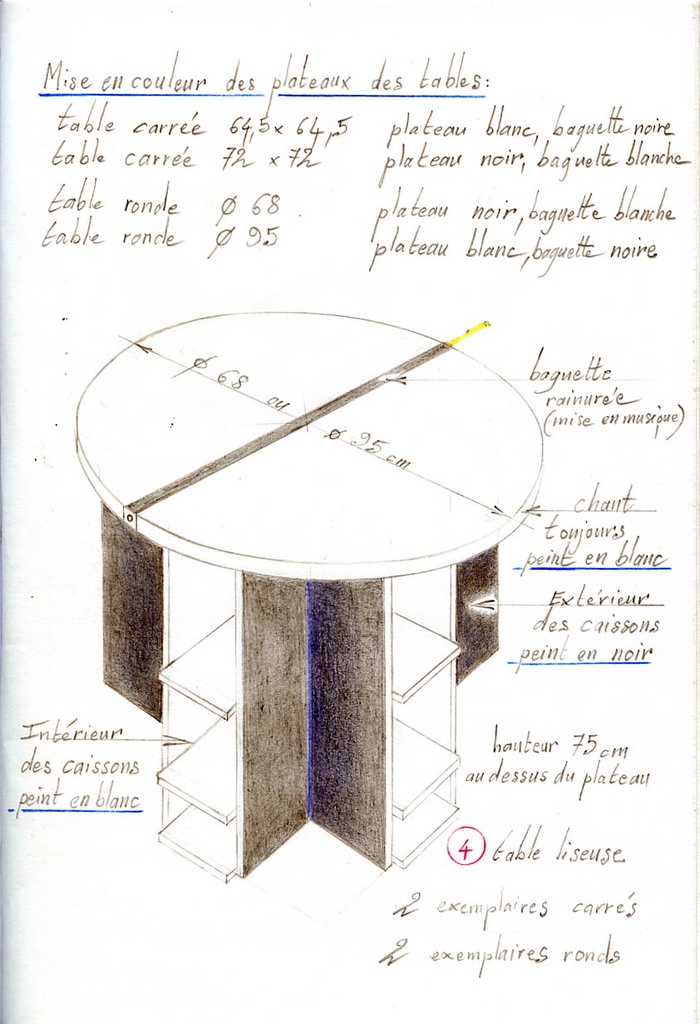 Mise en couleur des plateaux des tables:
table carrée 64,5 x 64,5 plateau blanc, baguette noire
table carrée 72 x 72 plateau noir, baguette blanche
table ronde Ø 68 plateau noir, baguette blanche
table ronde Ø 95 plateau blanc, baguette noire
Ø 68 ou
Ø 95 cm
baguette
rainurée
(mise en musique)
chant
toujours
peint en blanc
Extérieur
des caissons
peint en noir
Intérieur
des caissons
peint en blanc
hauteur 75 cm
au dessus du plateau
4 table liseuse
2 exemplaires carrés
2 exemplaires ronds